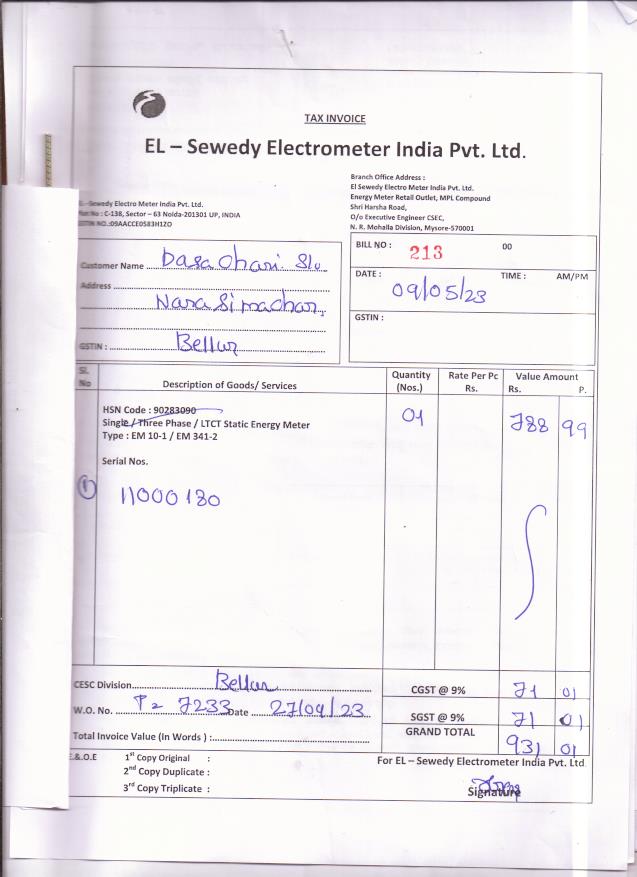 TAX INVOICE
EL – Sewedy Electrometer India Pvt. Ltd.
Branch Office Address :
El Sewedy Electro Meter India Pvt. Ltd.
Energy Meter Retail Outlet, MPL Compound
Shri Harsha Road,
O/o Executive Engineer CSEC,
N. R. Mohalla Division, Mysore-570001
Sewedy Electro Meter India Pvt. Ltd.
No : C-138, Sector – 63 Noida-201301 UP, INDIA
NO.:09AACCE0583H1ZO
BILL NO : 213 00
DATE : 09/05/23 TIME : AM/PM
GSTIN :
Customer Name Dasa Chari S/o
Address
Nara Simachar
GSTIN : Bellur
Sl. No Description of Goods/ Services Quantity (Nos.) Rate Per Pc Rs. Value Amount Rs. P.
HSN Code : 90283090 01 788 99
Single / Three Phase / LTCT Static Energy Meter
Type : EM 10-1 / EM 341-2
Serial Nos.
1 11000180
CESC Division Bellur CGST @ 9% 71 01
W.O. No. T= 7233 Date 27/04/23 SGST @ 9% 71 01
Total Invoice Value (In Words ) : GRAND TOTAL 931 01
E.&.O.E 1st Copy Original : For EL – Sewedy Electrometer India Pvt. Ltd
2nd Copy Duplicate :
3rd Copy Triplicate : Signature